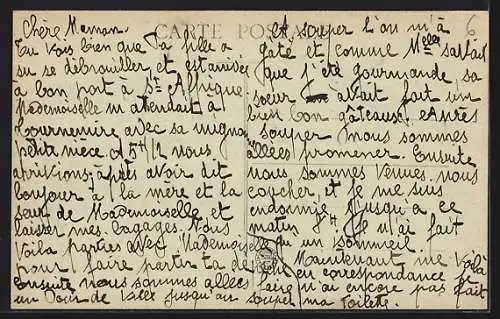 Chère Maman.
CARTE POSTALE
6
Tu vois bien que ta fille a
su se débrouiller et est arrivée
à bon port à St Affrique
Mademoiselle m'attendait à
Tournemire avec sa mignonne
petite nièce et 5h 1/2 nous
arrivions; après avoir dit
bonjour à la mère et la
sœur de Mademoiselle et
laisser mes bagages. Nous
Voilà parties avec Mademoiselle
pour faire partir ta dé
Ensuite nous sommes allées faire
un tour de ville jusqu'au souper
A souper l'on m'a
gâté et comme Melle savait
que j'été gourmande, sa
sœur avait fait un
bien bon gâteaux. Après
souper nous sommes
allées promener. Ensuite
nous sommes venues nous
coucher, et je me suis
endormie jusqu'à ce
matin 8H. Je n'ai fait
qu'un sommeil.
Maintenant me voilà
en correspondance je
n'ai encore pas fait
ma toilette.